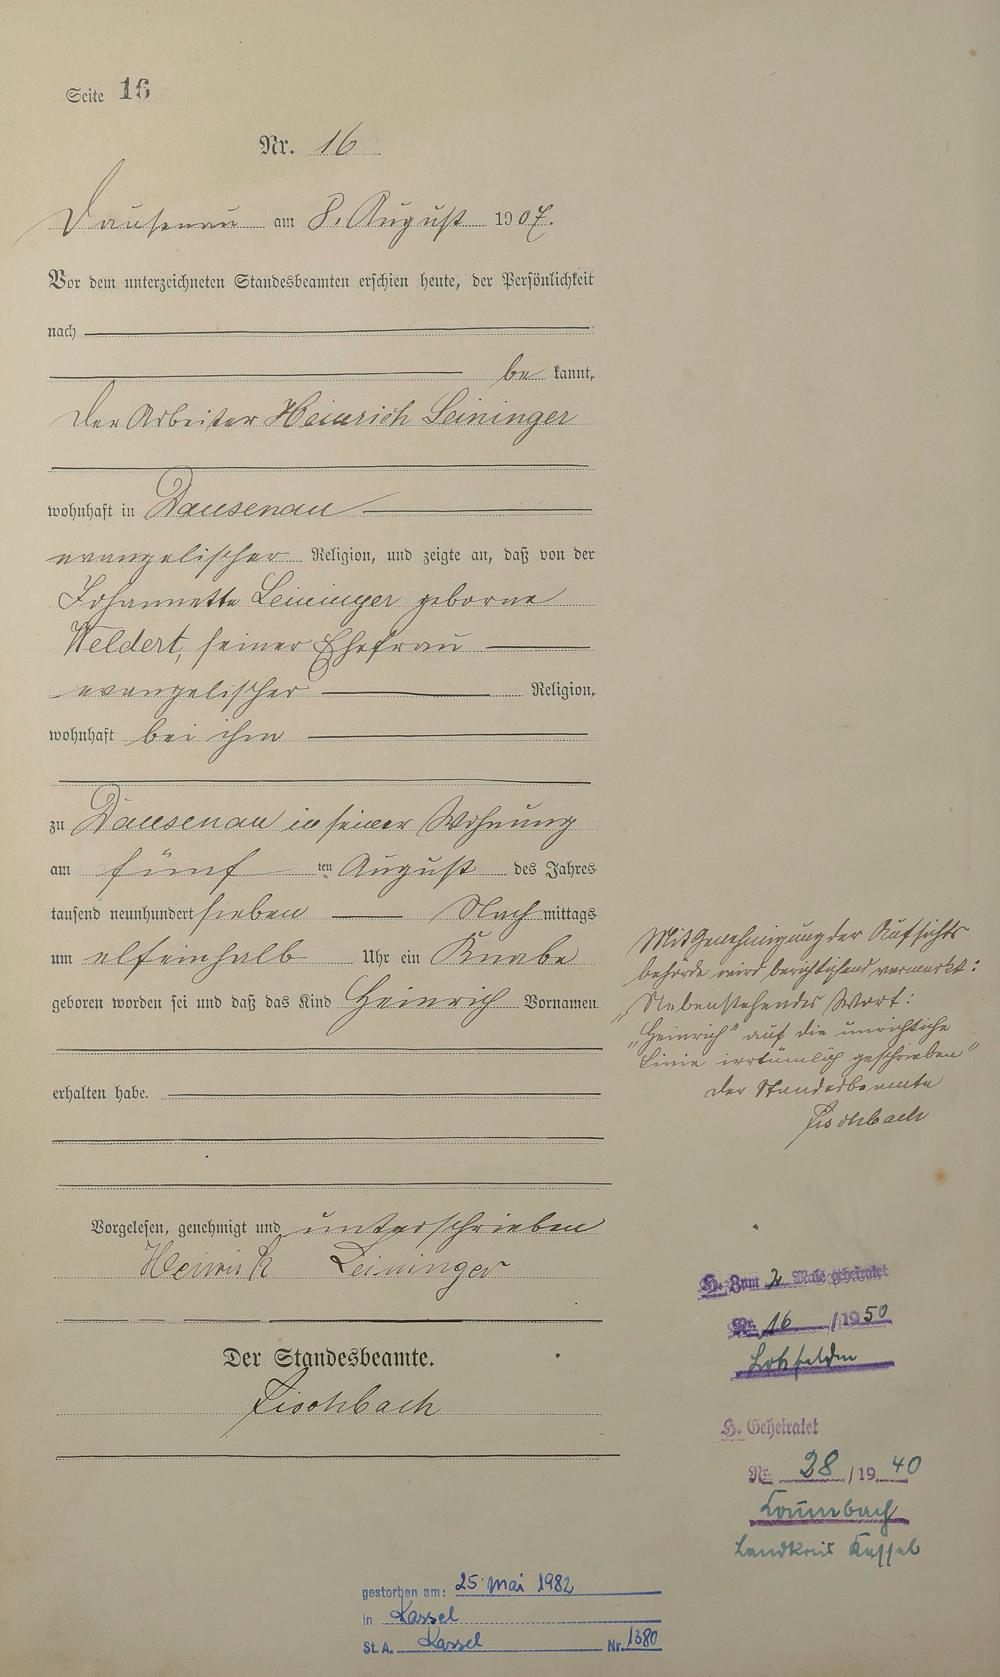 Seite 16
Nr. 16
Dausenau am 8. August 1907.
Vor dem unterzeichneten Standesbeamten erschien heute, der Persönlichkeit
nach
be kannt,
der Arbeiter Heinrich Leininger
wohnhaft in Dausenau
evangelischer Religion, und zeigte an, daß von der
Johannette Leininger geborne
Weldert, seiner Ehefrau
evangelischer Religion,
wohnhaft bei ihm
zu Dausenau in seiner Wohnung
am fünf ten August des Jahres
tausend neunhundert sieben Nach mittags
um elfeinhalb Uhr ein Knabe
geboren worden sei und daß das Kind Heinrich Vornamen
erhalten habe.
Vorgelesen, genehmigt und unterschrieben
Heinrich Leininger
Der Standesbeamte.
Fischbach
Mit Genehmigung der Aufsichts
behörde wird berichtigend vermerkt:
„Nebenstehendes Wort:
„Heinrich" auf die unrichtige
Linie irrtümlich geschrieben"
Der Standesbeamte
Fischbach
H. Zum 2 Male geheiratet
Nr. 16 /1950
H. Geheiratet
Nr. 28 /19 40
Landkreis Kassel
gestorben am: 25. Mai 1982
in Kassel
St. A. Kassel Nr. 1380